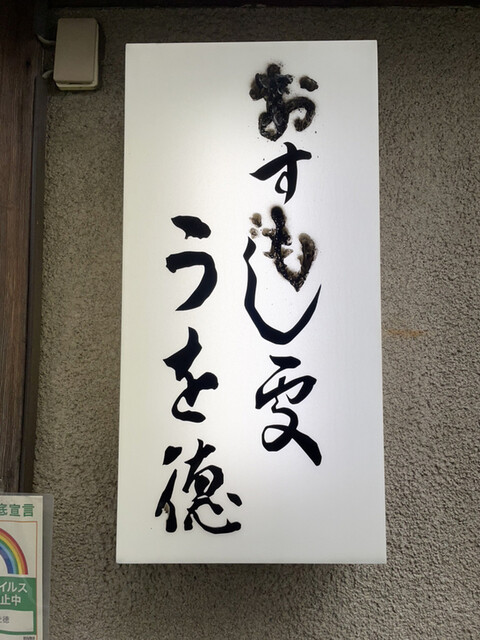 おすもし処
うを徳
底宣言
イルス
止中